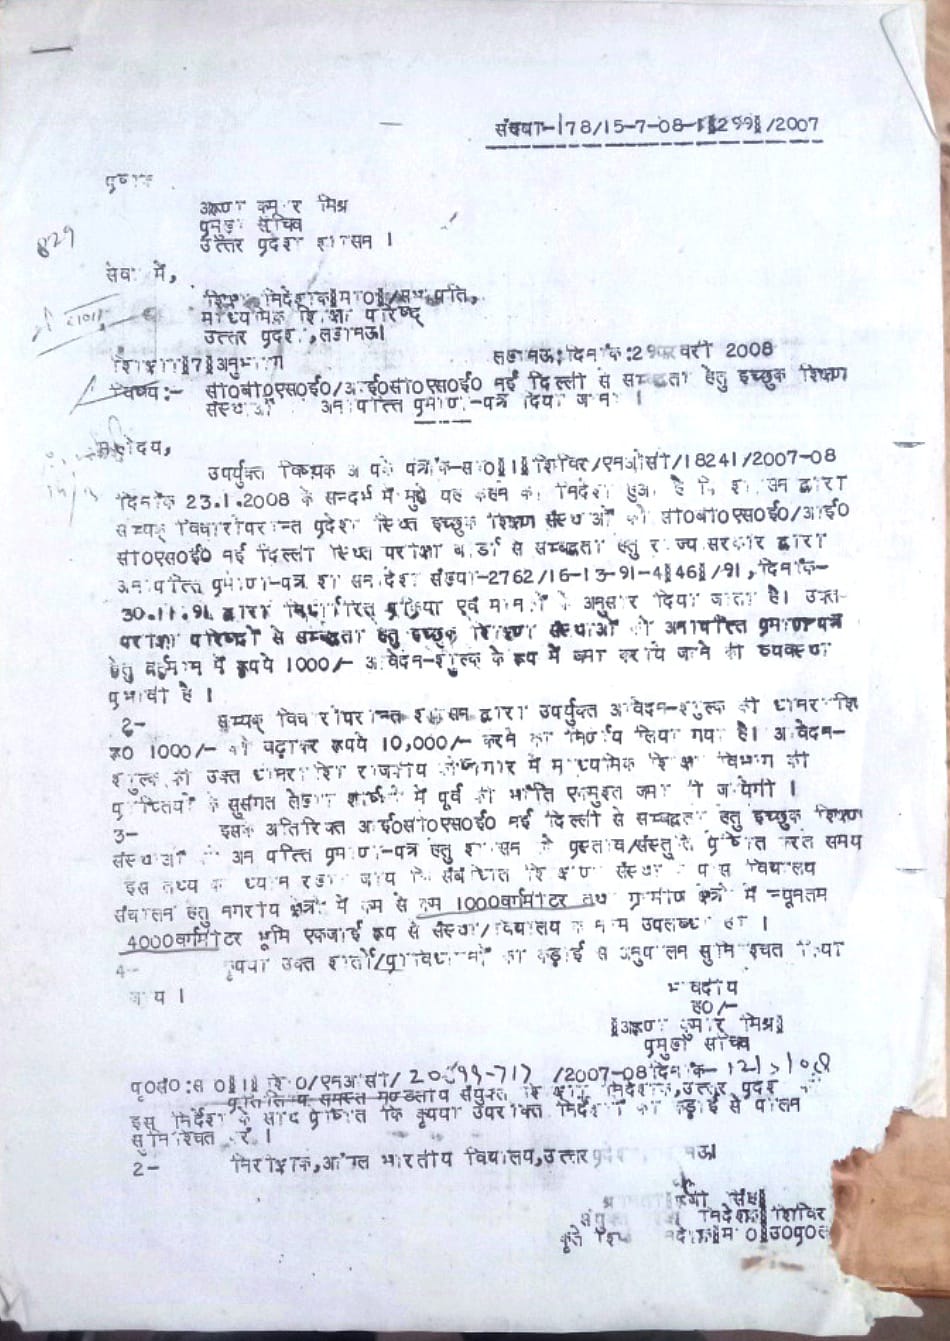 संख्या-178/15-7-08-1(299)/2007
प्रेषक
अरूण कुमार मिश्र
प्रमुख सचिव
उत्तर प्रदेश शासन ।
829
सेवा में,
शिक्षा निदेशक(मा0)/सभापति,
माध्यमिक शिक्षा परिषद्
उत्तर प्रदेश, लखनऊ।
शिक्षा(7)अनुभाग लखनऊ:दिनांक:29फरवरी 2008
विषय:- सी0बी0एस0ई0/आई0सी0एस0ई0 नई दिल्ली से सम्बद्धता हेतु इच्छुक शिक्षण
संस्थाओं अनापत्ति प्रमाण-पत्र दिया जाना ।
महोदय,
उपर्युक्त विषयक आपके पत्रांक-सा0(1)शिविर/एनओसी/18241/2007-08
दिनांक 23.1.2008 के सन्दर्भ में मुझे यह कहने का निदेश हुआ है कि शासन द्वारा
सम्यक् विचारोपरान्त प्रदेश स्थित इच्छुक शिक्षण संस्थाओं को सी0बी0एस0ई0/आई0
सी0एस0ई0 नई दिल्ली स्थित परीक्षा बोर्डो से सम्बद्धता हेतु राज्य सरकार द्वारा
अनापत्ति प्रमाण-पत्र शासनादेश संख्या-2762/16-13-91-4(46)/91, दिनांक-
30.11.91 द्वारा निर्धारित प्रक्रिया एवं मानकों के अनुसार दिया जाता है। उक्त
परीक्षा परिषदों से सम्बद्धता हेतु इच्छुक शिक्षण संस्थाओं को अनापत्ति प्रमाण पत्र
हेतु वर्तमान में रूपये 1000/- आवेदन-शुल्क के रूप में जमा कराये जाने की व्यवस्था
प्रभावी है ।
2- सम्यक् विचारोपरान्त शासन द्वारा उपर्युक्त आवेदन-शुल्क की धनराशि
रू0 1000/- को बढ़ाकर रूपये 10,000/- करने का निर्णय लिया गया है। आवेदन-
शुल्क की उक्त धनराशि राजकीय कोषागार में माध्यमिक शिक्षा विभाग की
प्राप्तियों के सुसंगत लेखा शीर्षक में पूर्व की भांति एकमुश्त जमा की जायेगी ।
3- इसके अतिरिक्त आई0सी0एस0ई0 नई दिल्ली से सम्बद्धता हेतु इच्छुक शिक्षण
संस्थाओं को अनापत्ति प्रमाण-पत्र हेतु शासन को प्रस्ताव/संस्तुति प्रेषित करते समय
इस तथ्य का ध्यान रखा जाय कि संबंधित शिक्षण संस्था के पास विद्यालय
संचालन हेतु नगरीय क्षेत्रों में कम से कम 1000वर्गमीटर तथा ग्रामीण क्षेत्रों में न्यूनतम
4000वर्गमीटर भूमि एकजाई रूप से संस्था/विद्यालय के नाम उपलब्ध हो ।
4- कृपया उक्त शर्तो/प्राविधानों का कड़ाई से अनुपालन सुनिश्चित किया
जाय ।
भवदीय
ह0/-
(अरूण कुमार मिश्र)
प्रमुख सचिव
पृ0सं0:सा0(1)शि0/एनओसी/ /2007-08दिनांक-
प्रतिलिपि समस्त मण्डलीय संयुक्त शिक्षा निदेशक, उत्तर प्रदेश को
इस निर्देश के साथ प्रेषित कि कृपया उपरोक्त निर्देशों का कड़ाई से पालन
सुनिश्चित करें ।
2- निरीक्षक, आंग्ल भारतीय विद्यालय, उत्तर प्रदेश
संयुक्त निदेशक(शिविर
कृते शिक्षा निदेशक(मा0)उ0प्र0